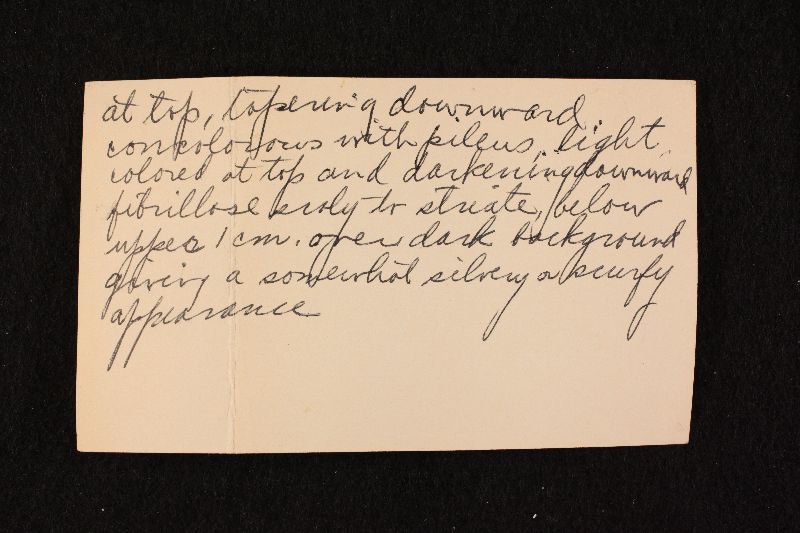 at top, tapering downward
concolorous with pileus, light
colored at top and darkening downward
fibrillose scaly to striate, below
upper 1 cm. over dark background
giving a somewhat silvery or scurfy
appearance